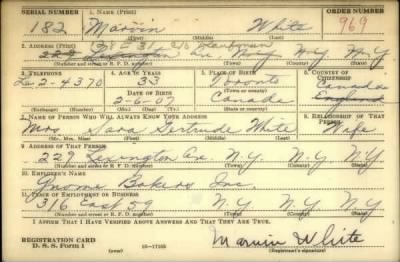 SERIAL NUMBER 1. NAME (Print) ORDER NUMBER
182 Marvin White 969
(First) (Middle) (Last)
2. ADDRESS (Print)
N.Y. N.Y. N.Y.
(Number and street or R. F. D. number) (Town) (County) (State)
3. TELEPHONE 4. AGE IN YEARS 5. PLACE OF BIRTH 6. COUNTRY OF CITIZENSHIP
33 Toronto Canada
Le 2-4370 DATE OF BIRTH (Town or county) England
2-6-07 Canada
(Exchange) (Number) (Mo.) (Day) (Yr.) (State or country)
7. NAME OF PERSON WHO WILL ALWAYS KNOW YOUR ADDRESS 8. RELATIONSHIP OF THAT PERSON
Mrs. Sara Gertrude White Wife
(Mr., Mrs., Miss) (First) (Middle) (Last)
9. ADDRESS OF THAT PERSON
Lexington Ave. N.Y. N.Y. N.Y.
(Number and street or R. F. D. number) (Town) (County) (State)
10. EMPLOYER'S NAME
Gnome Bakers Inc.
11. PLACE OF EMPLOYMENT OR BUSINESS
316 East 59 N.Y. N.Y. N.Y.
(Number and street or R. F. D. number) (Town) (County) (State)
I AFFIRM THAT I HAVE VERIFIED ABOVE ANSWERS AND THAT THEY ARE TRUE.
REGISTRATION CARD
D. S. S. Form 1 (over) 16-17105 Marvin White
(Registrant's signature)